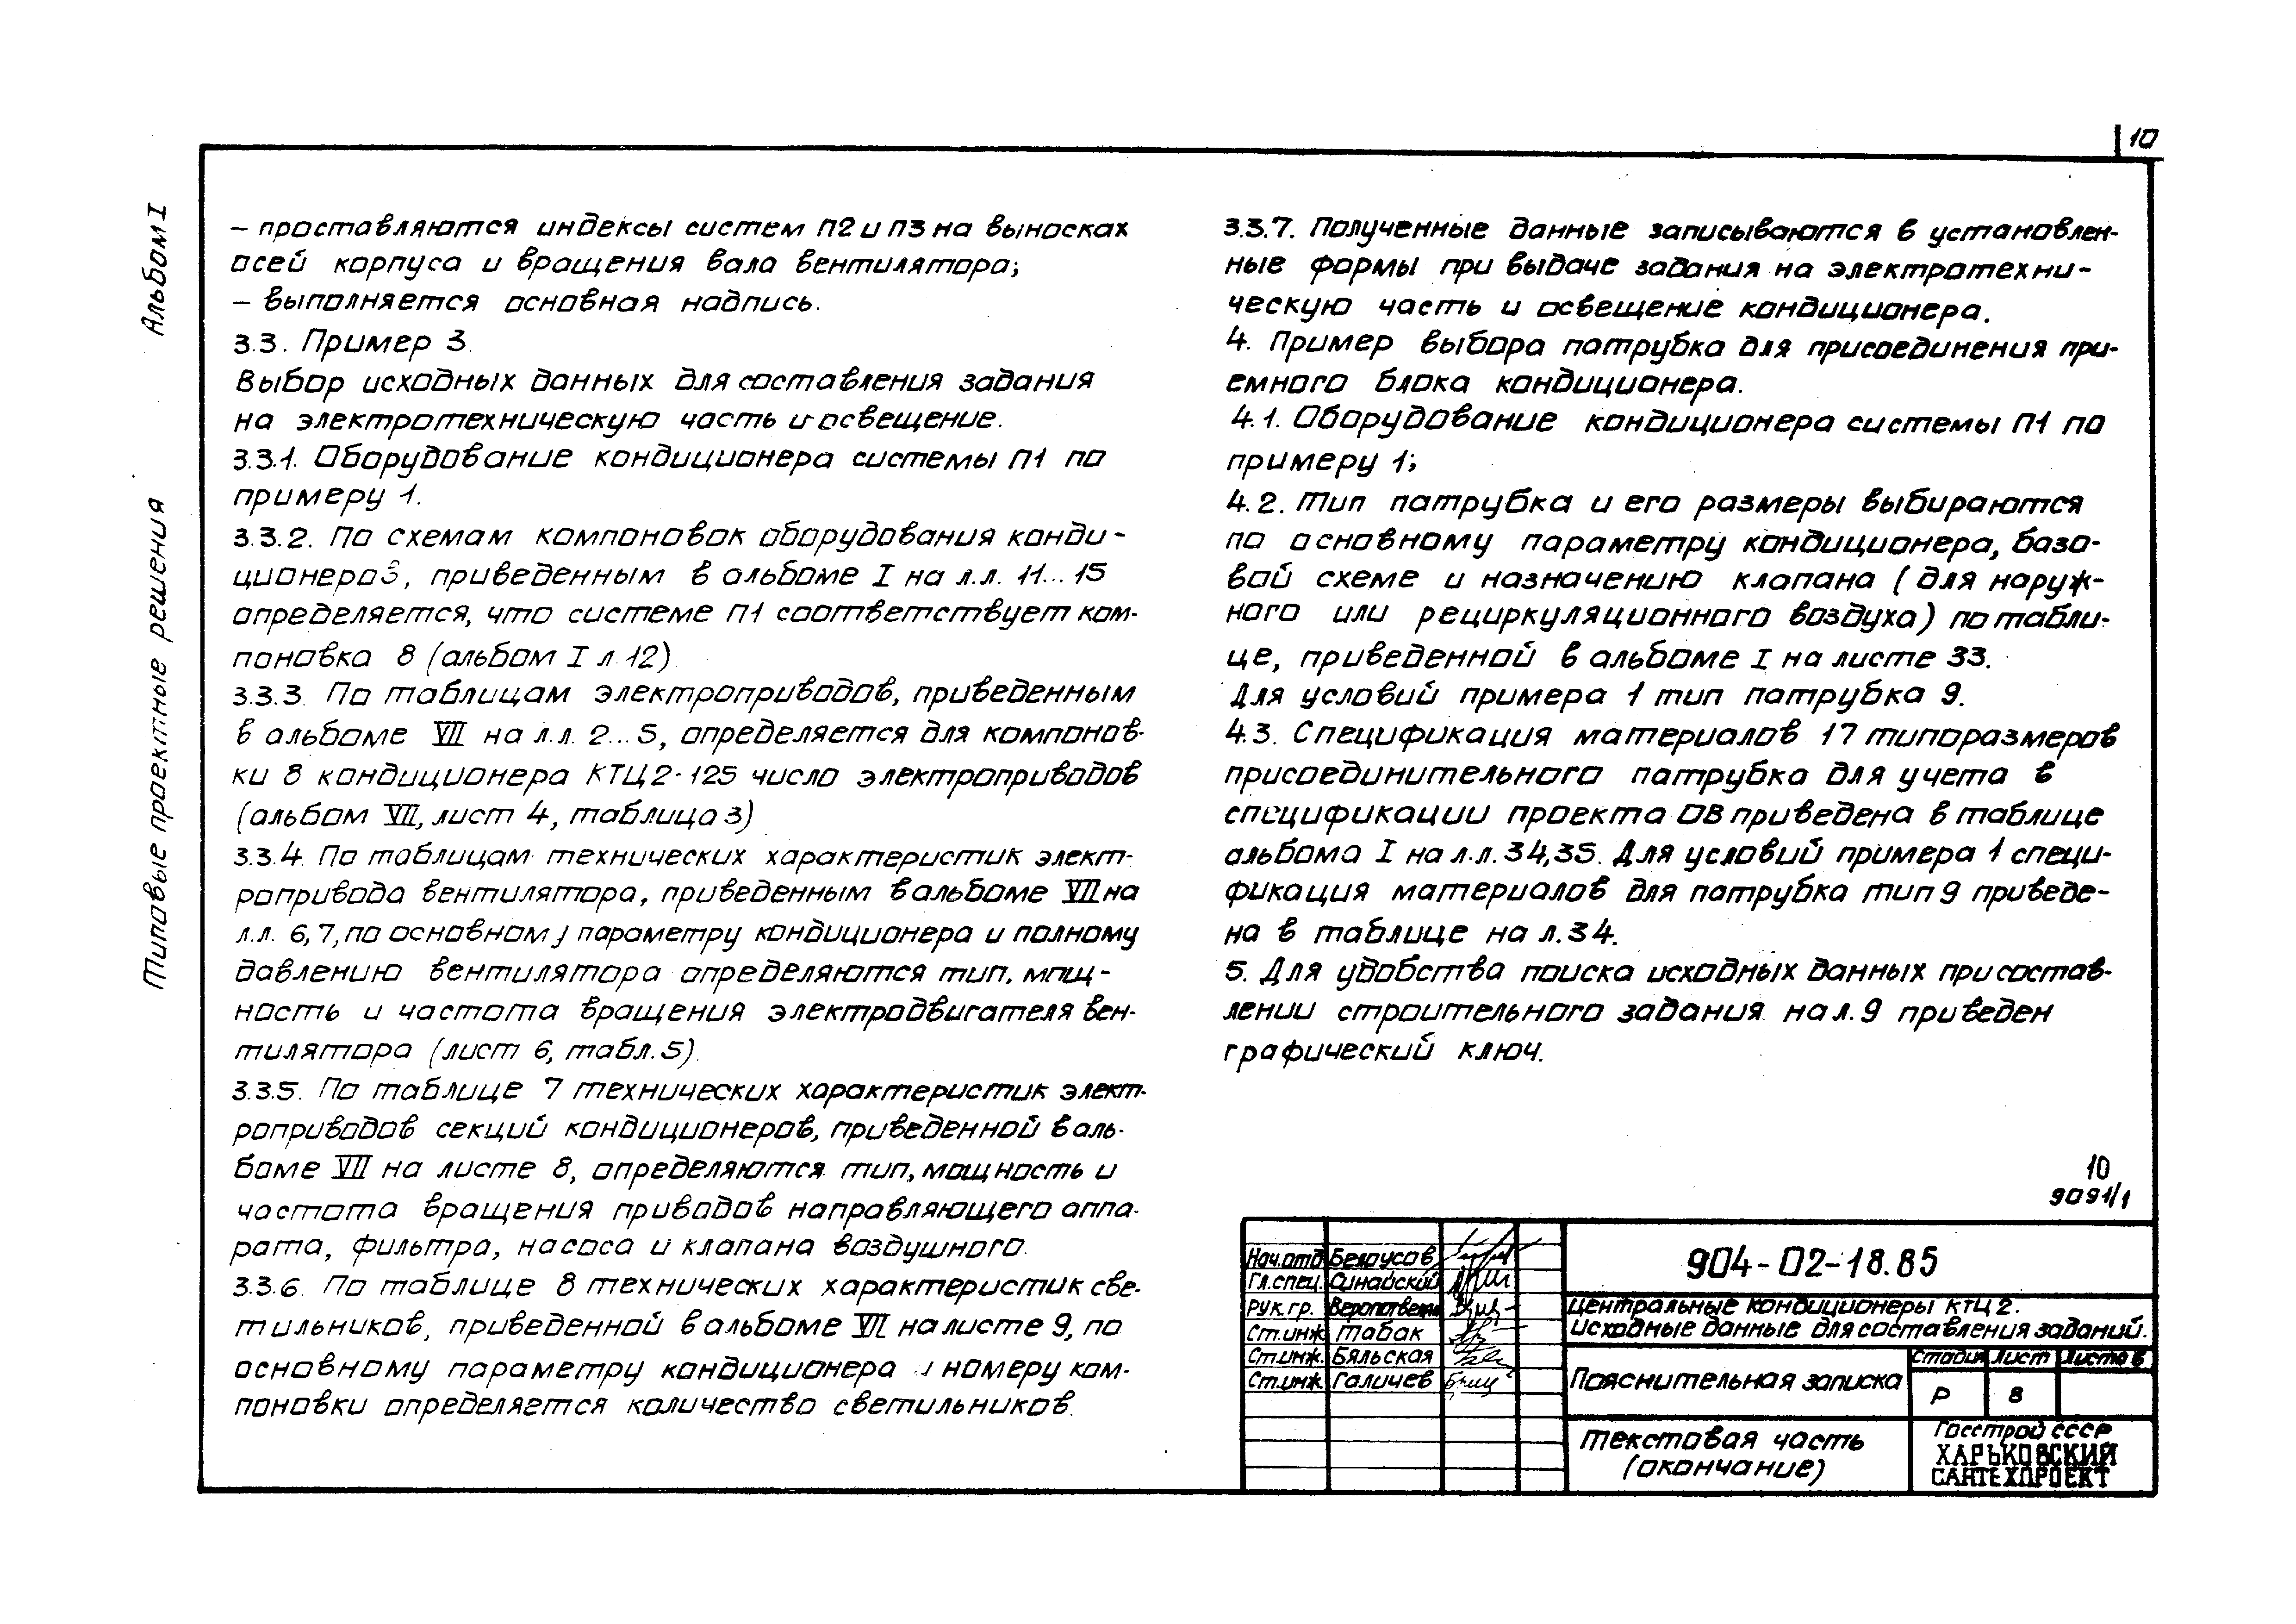 10
Альбом I
Типовые проектные решения
– проставляются индексы систем П2 и П3 на выносках
осей корпуса и вращения вала вентилятора;
– выполняется основная надпись.
3.3. Пример 3.
Выбор исходных данных для составления задания
на электротехническую часть и освещение.
3.3.1. Оборудование кондиционера системы П1 по
примеру 1.
3.3.2. По схемам компоновок оборудования конди-
ционеров, приведенным в альбоме I на л.л. 11...15
определяется, что системе П1 соответствует ком-
поновка 8 (альбом I л.12)
3.3.3. По таблицам электроприводов, приведенным
в альбоме VII на л.л. 2...5, определяется для компонов-
ки 8 кондиционера КТЦ2-125 число электроприводов
(альбом VII, лист 4, таблица 3)
3.3.4. По таблицам технических характеристик элект-
ропривода вентилятора, приведенным в альбоме VII на
л.л. 6,7, по основному параметру кондиционера и полному
давлению вентилятора определяются тип, мощ-
ность и частота вращения электродвигателя вен-
тилятора (лист 6, табл.5).
3.3.5. По таблице 7 технических характеристик элект-
роприводов секций кондиционеров, приведенной в аль-
боме VII на листе 8, определяются тип, мощность и
частота вращения приводов направляющего аппа-
рата, фильтра, насоса и клапана воздушного.
3.3.6. По таблице 8 технических характеристик све-
тильников, приведенной в альбоме VII на листе 9, по
основному параметру кондиционера и номеру ком-
поновки определяется количество светильников.
3.3.7. Полученные данные записываются в установлен-
ные формы при выдаче задания на электротехни-
ческую часть и освещение кондиционера.
4. Пример выбора патрубка для присоединения при-
емного блока кондиционера.
4.1. Оборудование кондиционера системы П1 по
примеру 1;
4.2. Тип патрубка и его размеры выбираются
по основному параметру кондиционера, базо-
вой схеме и назначению клапана (для наруж-
ного или рециркуляционного воздуха) по табли-
це, приведенной в альбоме I на листе 33.
Для условий примера 1 тип патрубка 9.
4.3. Спецификация материалов 17 типоразмеров
присоединительного патрубка для учета в
спецификации проекта ОВ приведена в таблице
альбома I на л.л. 34,35. Для условий примера 1 специ-
фикация материалов для патрубка тип 9 приведе-
на в таблице на л.34.
5. Для удобства поиска исходных данных при состав-
лении строительного задания на л.9 приведен
графический ключ.
10
9091/1
Нач.отд Белоусов
Гл.спец. Синайский
Рук.гр.
Ст.инж Табак
Ст.инж. Бяльская
Ст.инж. Галичев
904-02-18.85
Центральные кондиционеры КТЦ 2.
Исходные данные для составления заданий.
Пояснительная записка
Стадия Лист Листов
Р 8
Текстовая часть
(окончание)
Госстрой СССР
ХАРЬКОВСКИЙ
САНТЕХПРОЕКТ